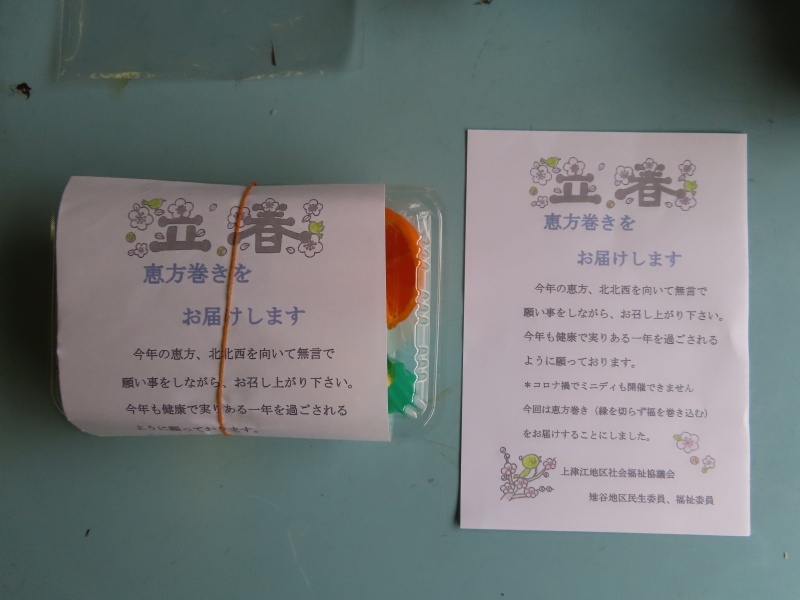 立春
恵方巻きを
お届けします
今年の恵方、北北西を向いて無言で
願い事をしながら、お召し上がり下さい。
今年も健康で実りある一年を過ごされる
ように願っております。
立春
恵方巻きを
お届けします
今年の恵方、北北西を向いて無言で
願い事をしながら、お召し上がり下さい。
今年も健康で実りある一年を過ごされる
ように願っております。
＊コロナ禍でミニディも開催できません
今回は恵方巻き（縁を切らず福を巻き込む）
をお届けすることにしました。
上津江地区社会福祉協議会
地区民生委員、福祉委員